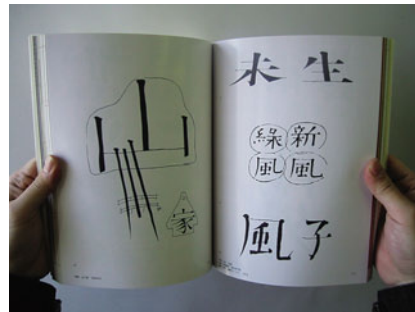 家
未生
緑新
風風
風子